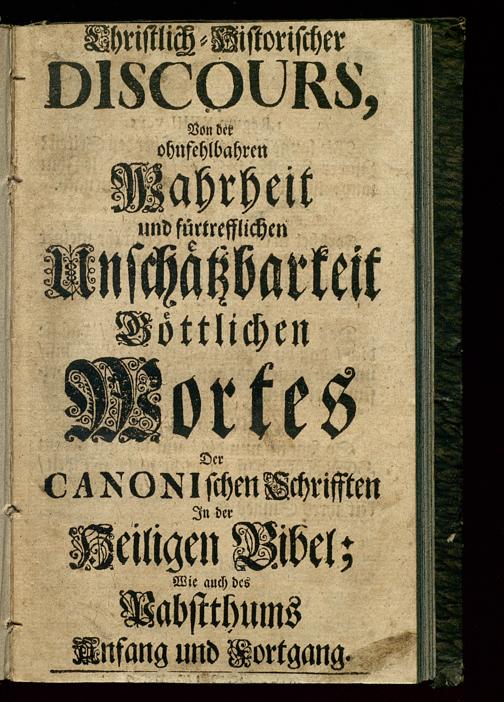 Christlich-Historischer
DISCOURS,
Von der
ohnfehlbahren
Wahrheit
und fürtrefflichen
Unschätzbarkeit
Göttlichen
Wortes
Der
CANONIschen Schrifften
In der
Heiligen Bibel;
Wie auch des
Pabstthums
Anfang und Fortgang.